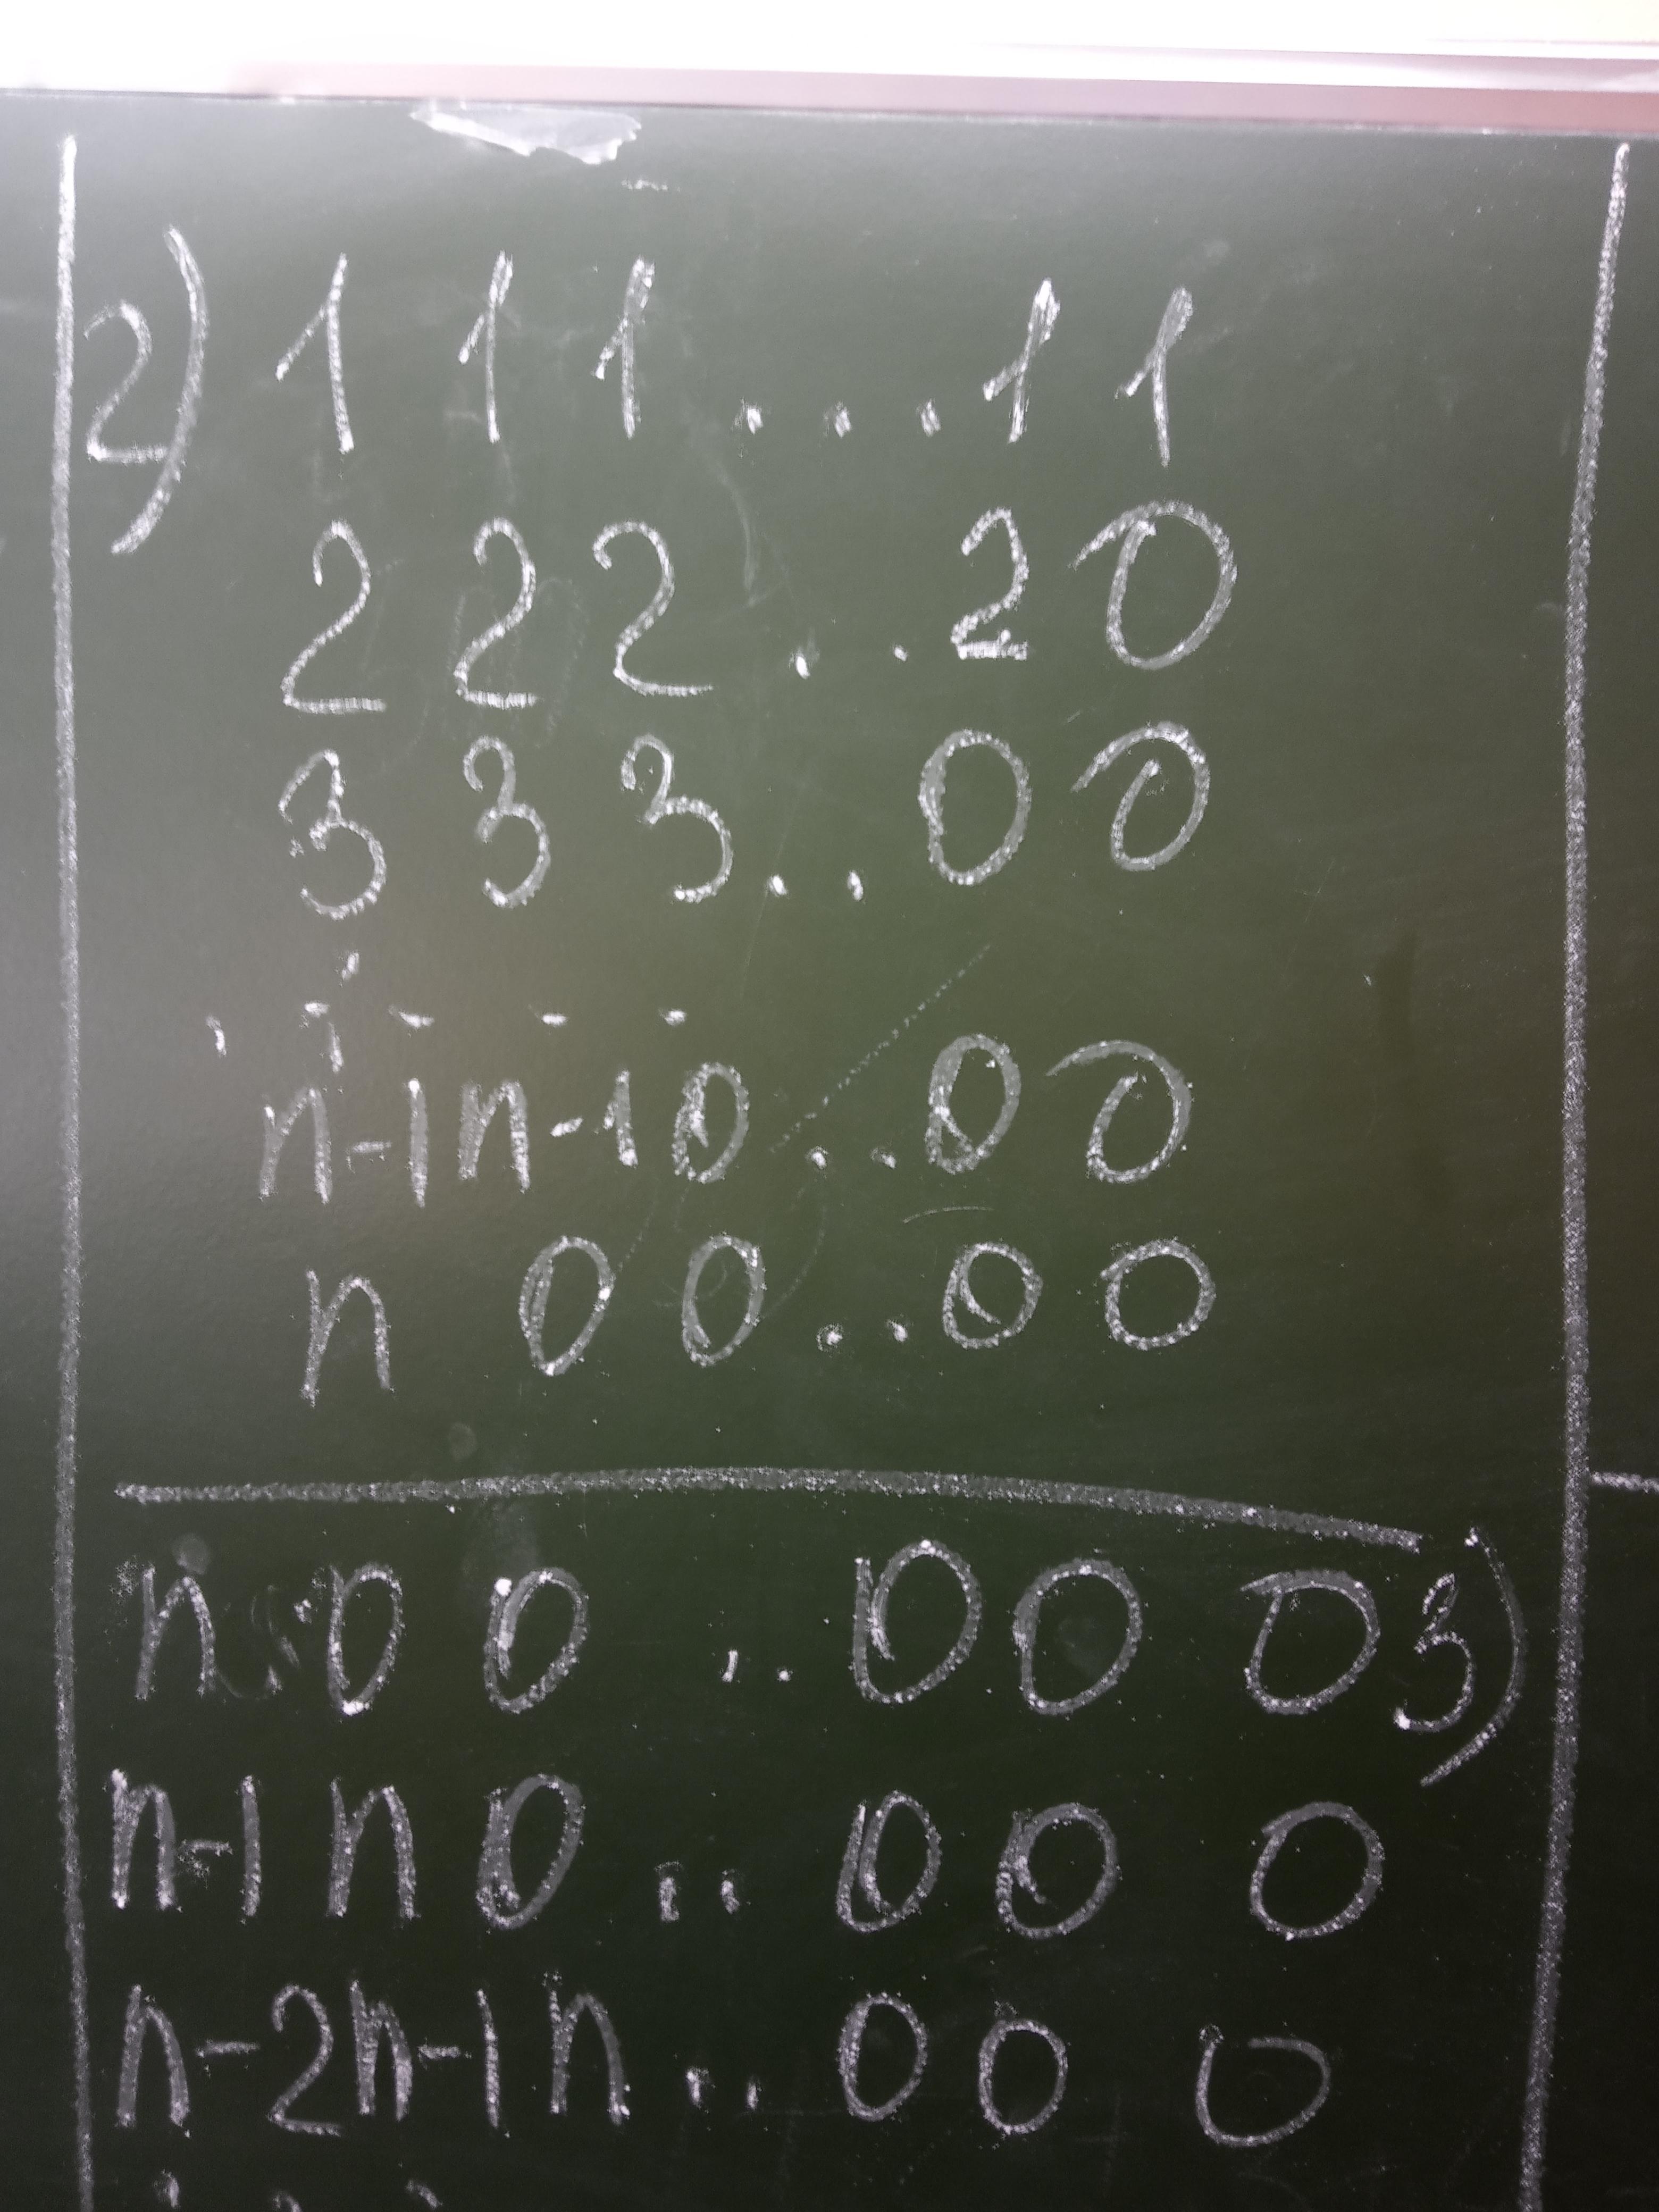 2) 1 1 1 . . . 1 1
2 2 2 . . 2 0
3 3 3 . . 0 0
n-1 n-1 0 . . 0 0
n 0 0 . . 0 0
n 0 0 . . 0 0 0 3)
n-1 n 0 . . 0 0 0
n-2 n-1 n . . 0 0 0